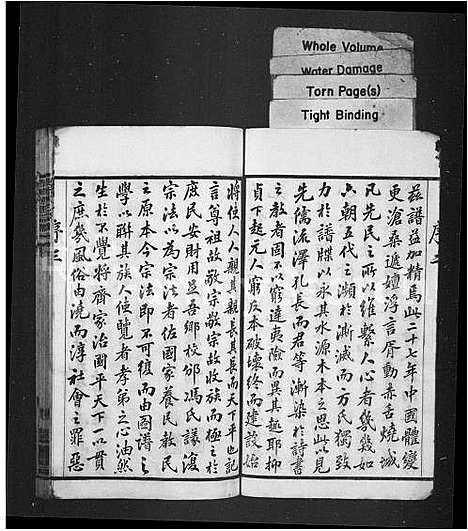 Whole Volume
Water Damage
Torn Page(s)
Tight Binding
序二
茲譜益加精焉此二十七年中國體變
更滄桑遞嬗浮言胥動赤舌燒城
凡先民之所以維繫人心者幾幾如
六朝五代之瀕於澌滅而万氏獨致
力於譜牒以永其水源木本之思此以見
先儒流澤孔長而君等漸染於詩書
之教者固不以窮達夷險而異其趣耶抑
貞下起元人窮反本破壞終而建設始
將使人人親其親長其長而天下平也記
言尊祖故敬宗敬宗故收族而極之於
庶民安財用足吾鄉校邠馮氏議復
宗法以為宗法者佐國家養民教民
之原本今宗法即不可復而由圖譜之
學以聯其族人使覽者孝弟之心油然
生於不覺將齊家治國平天下一以貫
之庶幾風俗由澆而淳社會之罪惡
序三